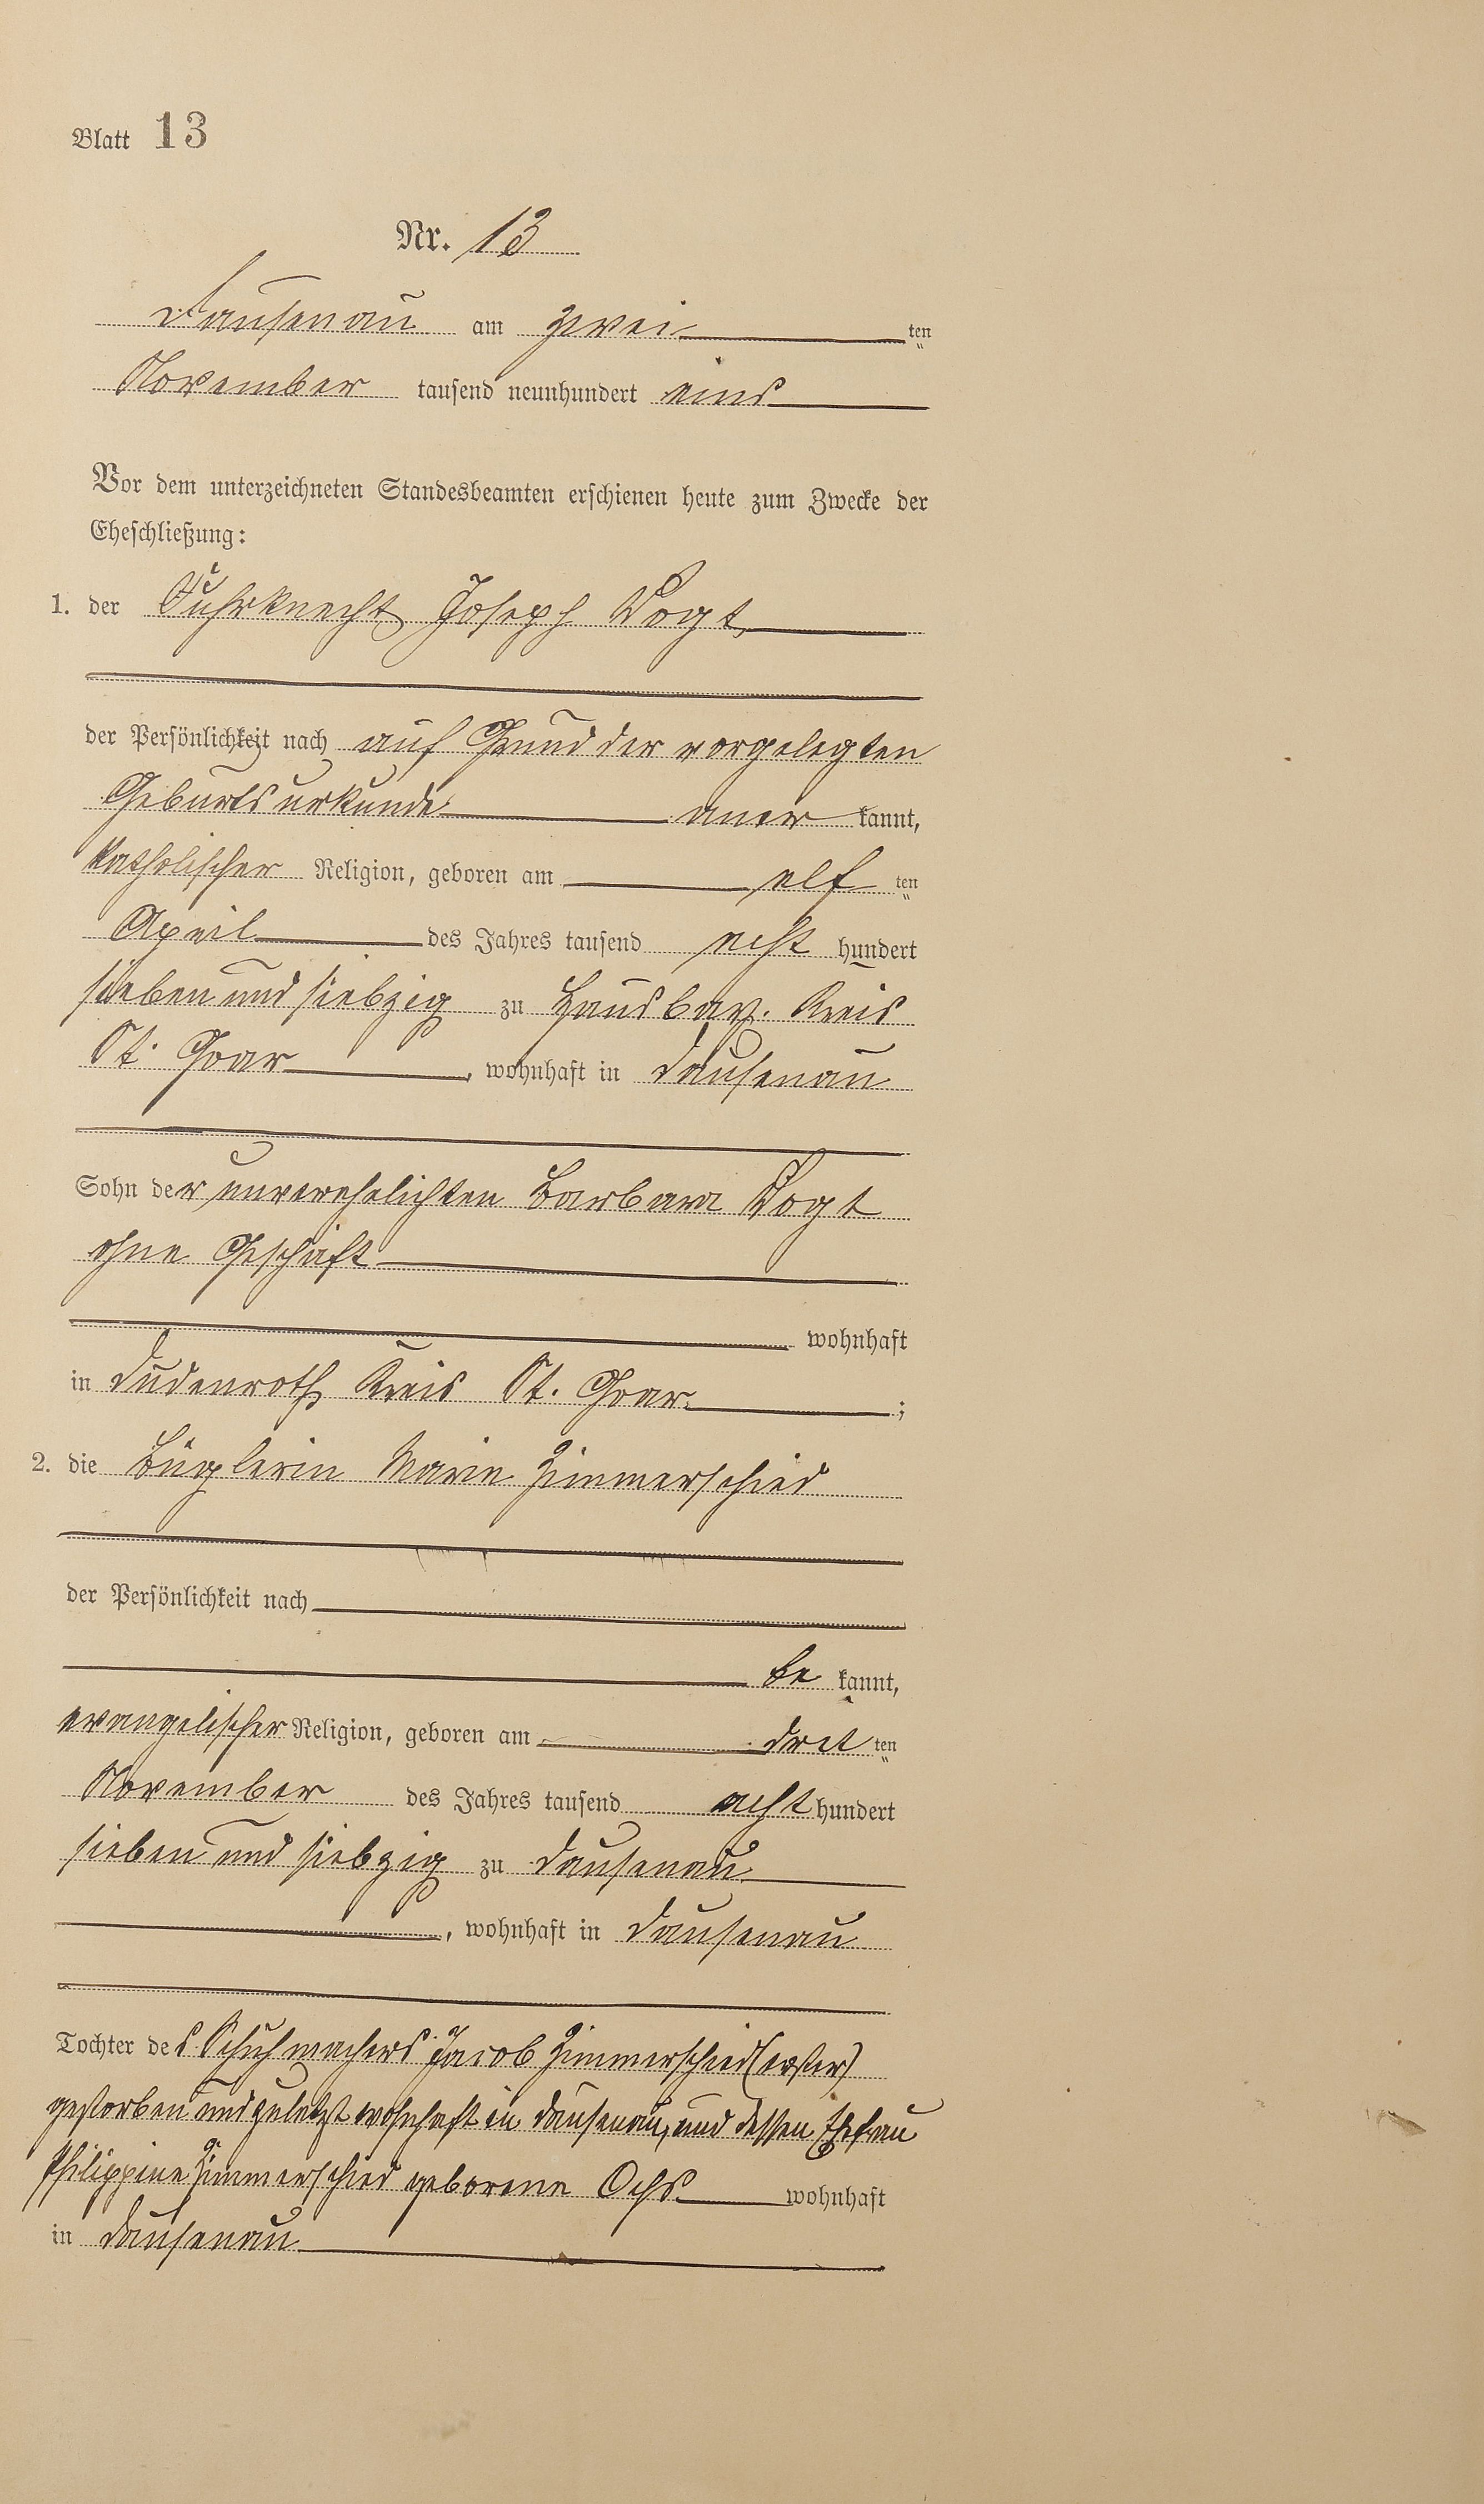 Blatt 13
Nr. 13
Dausenau am zwei ten
November tausend neunhundert eins
Vor dem unterzeichneten Standesbeamten erschienen heute zum Zwecke der
Eheschließung:
1. der Fuhrknecht Joseph Vogt,
der Persönlichkeit nach auf Grund der vorgelegten
Geburtsurkunde aner kannt,
katholischer Religion, geboren am elf ten
April des Jahres tausend acht hundert
sieben und siebzig zu Hausbay. Kreis
St. Goar, wohnhaft in Dausenau
Sohn der unverehelichten Barbara Vogt
ohne Geschäft
wohnhaft
in Dudenroth Kreis St. Goar ;
2. die Büglerin Marie Zimmerschied
der Persönlichkeit nach
be kannt,
evangelischer Religion, geboren am drit ten
November des Jahres tausend acht hundert
sieben und siebzig zu Dausenau
, wohnhaft in Dausenau
Tochter des Schuhmachers Jacob Zimmerschied (erster)
gestorben und zuletzt wohnhaft in Dausenau, und dessen Ehefrau
Philippine Zimmerschied geborene Ochs wohnhaft
in Dausenau